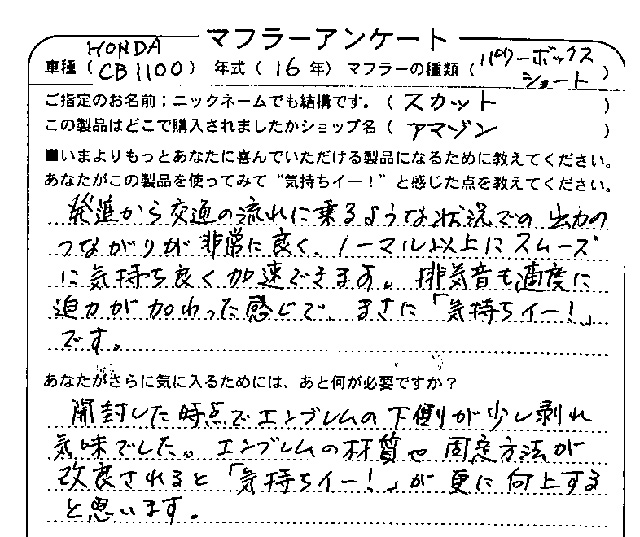 マフラーアンケート
車種 ( HONDA CB1100 ) 年式 ( 16 年) マフラーの種類 ( パワーボックス ショート )
ご指定のお名前；ニックネームでも結構です。( スカット )
この製品はどこで購入されましたかショップ名 ( アマゾン )
■いまよりもっとあなたに喜んでいただける製品になるために教えてください。
あなたがこの製品を使ってみて“気持ちイー！”と感じた点を教えてください。
発進から交通の流れに乗るような状況での出力の
つながりが非常に良く、ノーマル以上にスムーズ
に気持ち良く加速できます。排気音も適度に
迫力が加わった感じで、まさに「気持ちイー！」
です。
あなたがさらに気に入るためには、あと何が必要ですか？
開封した時点でエンブレムの下側が少し剥れ
気味でした。エンブレムの材質や固定方法が
改良されると「気持ちイー！」が更に向上する
と思います。